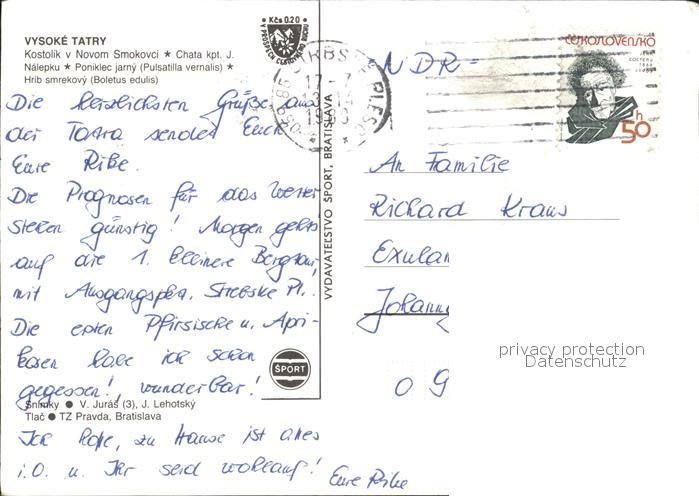 VYSOKÉ TATRY
Kostolík v Novom Smokovci ★ Chata kpt. J.
Nálepku ★ Poniklec jarný (Pulsatilla vernalis) ★
Hríb smrekový (Boletus edulis)
Die herzlichsten Grüße aus
der Tatra sendet Euch
Eure Rike.
Die Prognosen für das Wetter
stehen günstig! Morgen gehts
auf die 1. kleinere Bergtour,
mit Ausgangspkt. Strebske Pl..
Die ersten Pfirsische u. Apri-
kosen habe ich schon
gegessen!, wunderbar!
Snímky ● V. Juráš (3), J. Lehotský
Tlač ● TZ Pravda, Bratislava
Ich hoffe, zu Hause ist alles
i.O. u. Ihr seid wohlauf!
Eure Rike
VYDAVATEĽSTVO ŠPORT, BRATISLAVA
ŠPORT
Kčs 0.20
ČESKOSLOVENSKO
COCTEAU
50 h
NDR
An Familie
Richard Kraus
Exulan
Johann
0 9
privacy protection
Datenschutz